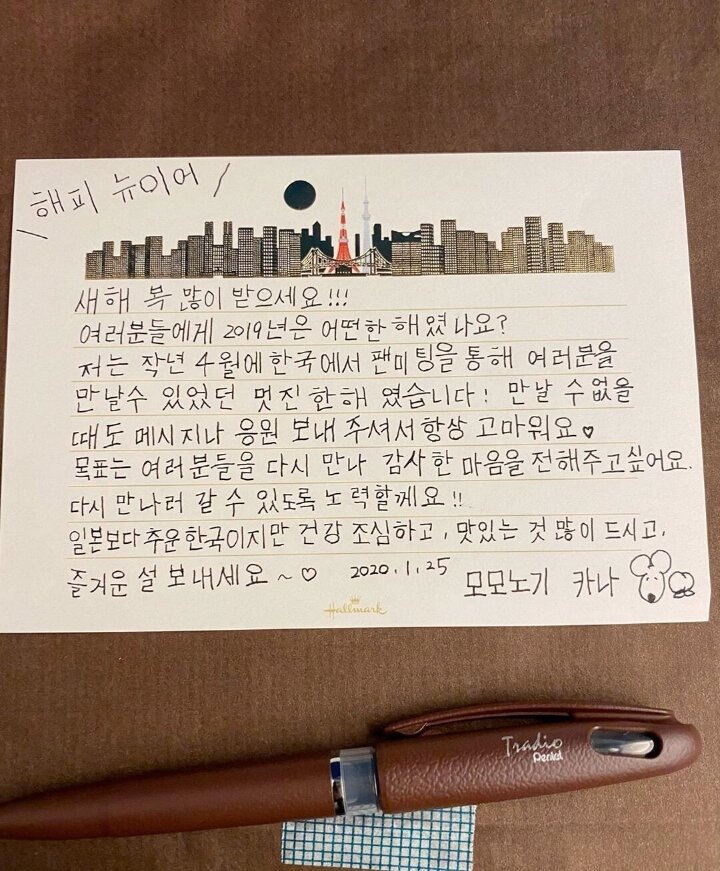 \ 해피 뉴이어 /
새해 복 많이 받으세요!!!
여러분들에게 2019년은 어떤한 해였나요?
저는 작년 4월에 한국에서 팬미팅을 통해 여러분을
만날수 있었던 멋진 한해 였습니다! 만날 수 없을
때도 메시지나 응원 보내 주셔서 항상 고마워요♥
목표는 여러분들을 다시 만나 감사한 마음을 전해주고싶어요.
다시 만나러 갈 수 있도록 노력할께요!!
일본보다 추운 한국이지만 건강 조심하고, 맛있는 것 많이 드시고,
즐거운 설 보내세요~♡ 2020.1.25 모모노기 카나
Hallmark
Tradio
Pentel